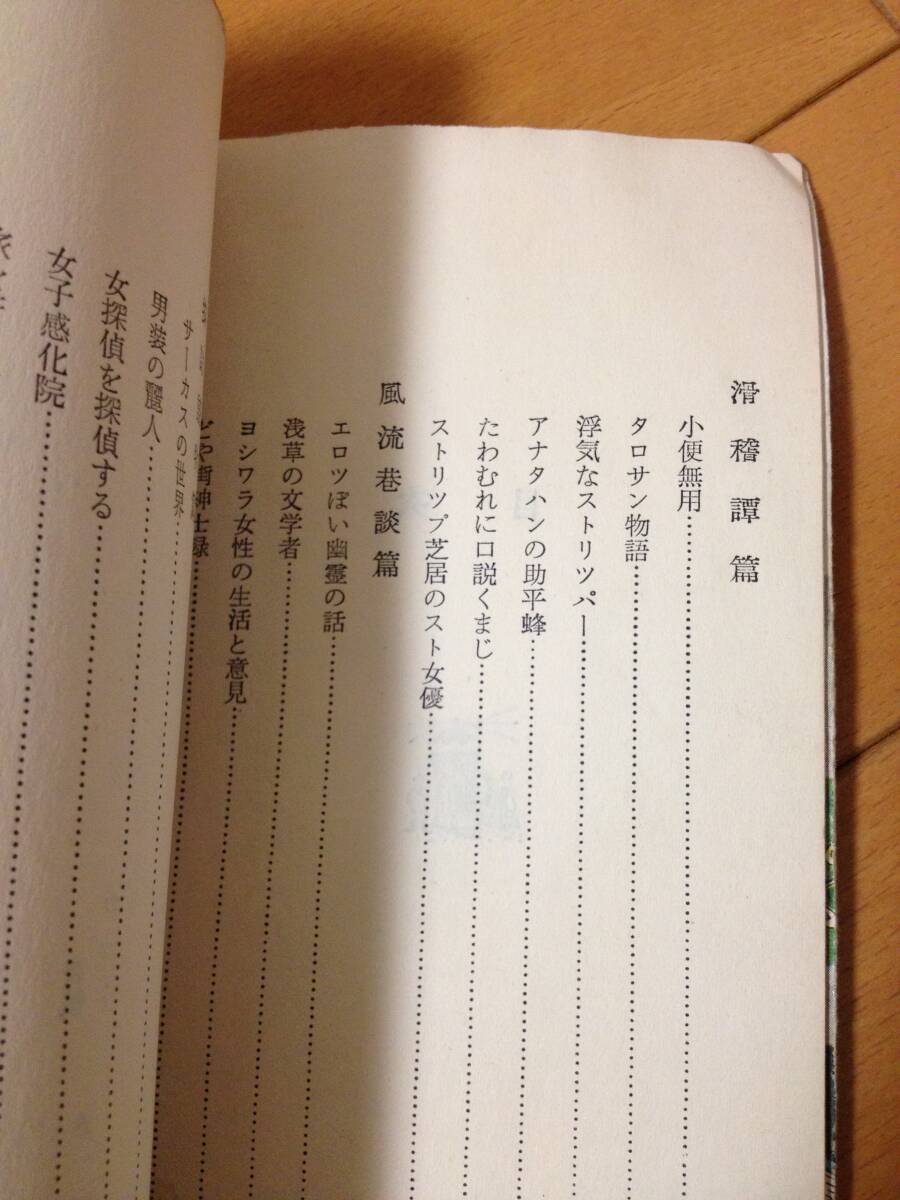 滑稽譚篇
小便無用
タロサン物語
浮気なストリツパー
アナタハンの助平蜂
たわむれに口説くまじ
ストリツプ芝居のスト女優
風流巷談篇
エロツぽい幽霊の話
浅草の文学者
ヨシワラ女性の生活と意見
どや街紳士録
サーカスの世界
男装の麗人
女探偵を探偵する
女子感化院